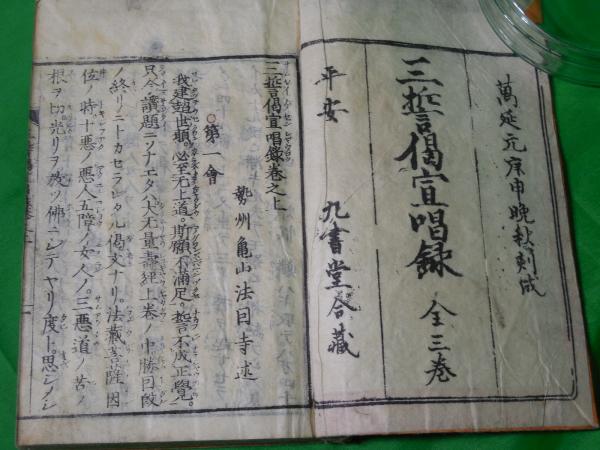 萬延元庚申晩秋刻成
三誓偈宣唱録 全三巻
平安 九書堂合藏
三誓偈宣唱錄巻之上
勢州龜山法因寺述
○第一會
我建超世願。必至无上道。斯願不滿足。誓不成正覺。
只今讀題ニソナエタハ大无量壽經上巻ノ中勝因段
ノ終リニトカセラレタル偈文ナリ。法藏菩薩因
位ノ時十悪ノ悪人五障ノ女人ノ。三悪道ノ苦ノ
根ヲ切。光リヲ放ツ佛ニシテヤリ度ト。思シメシ